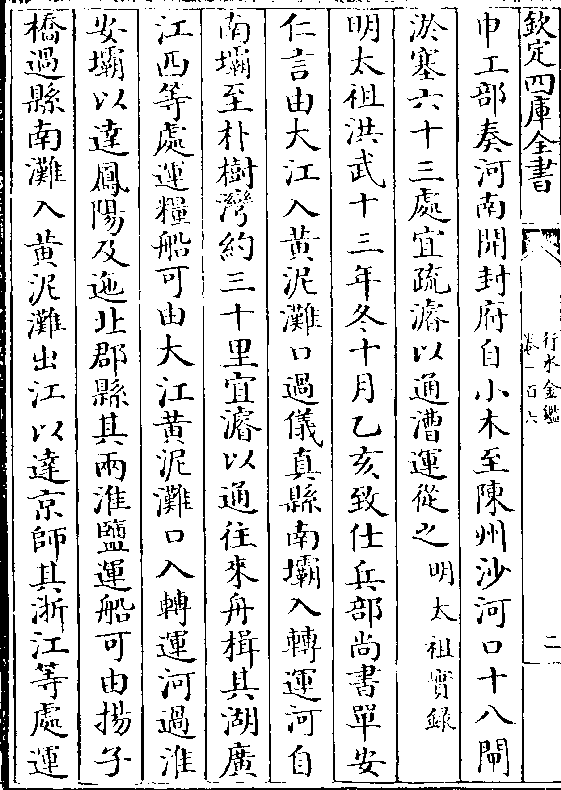 欽定四庫全書
行水金鑑
卷一百六
二
申工部奏河南開封府自小木至陳州沙河口十八閘
淤塞六十三處宜疏濬以通漕運從之 明太祖實錄
明太祖洪武十三年冬十月乙亥致仕兵部尚書單安
仁言由大江入黃泥灘口過儀真縣南壩入轉運河自
南壩至朴樹灣約三十里宜濬以通往來舟楫其湖廣
江西等處運糧船可由大江黃泥灘口入轉運河過淮
安壩以達鳳陽及迤北郡縣其兩淮鹽運船可由揚子
橋過縣南灘入黃泥灘出江以達京師其浙江等處運